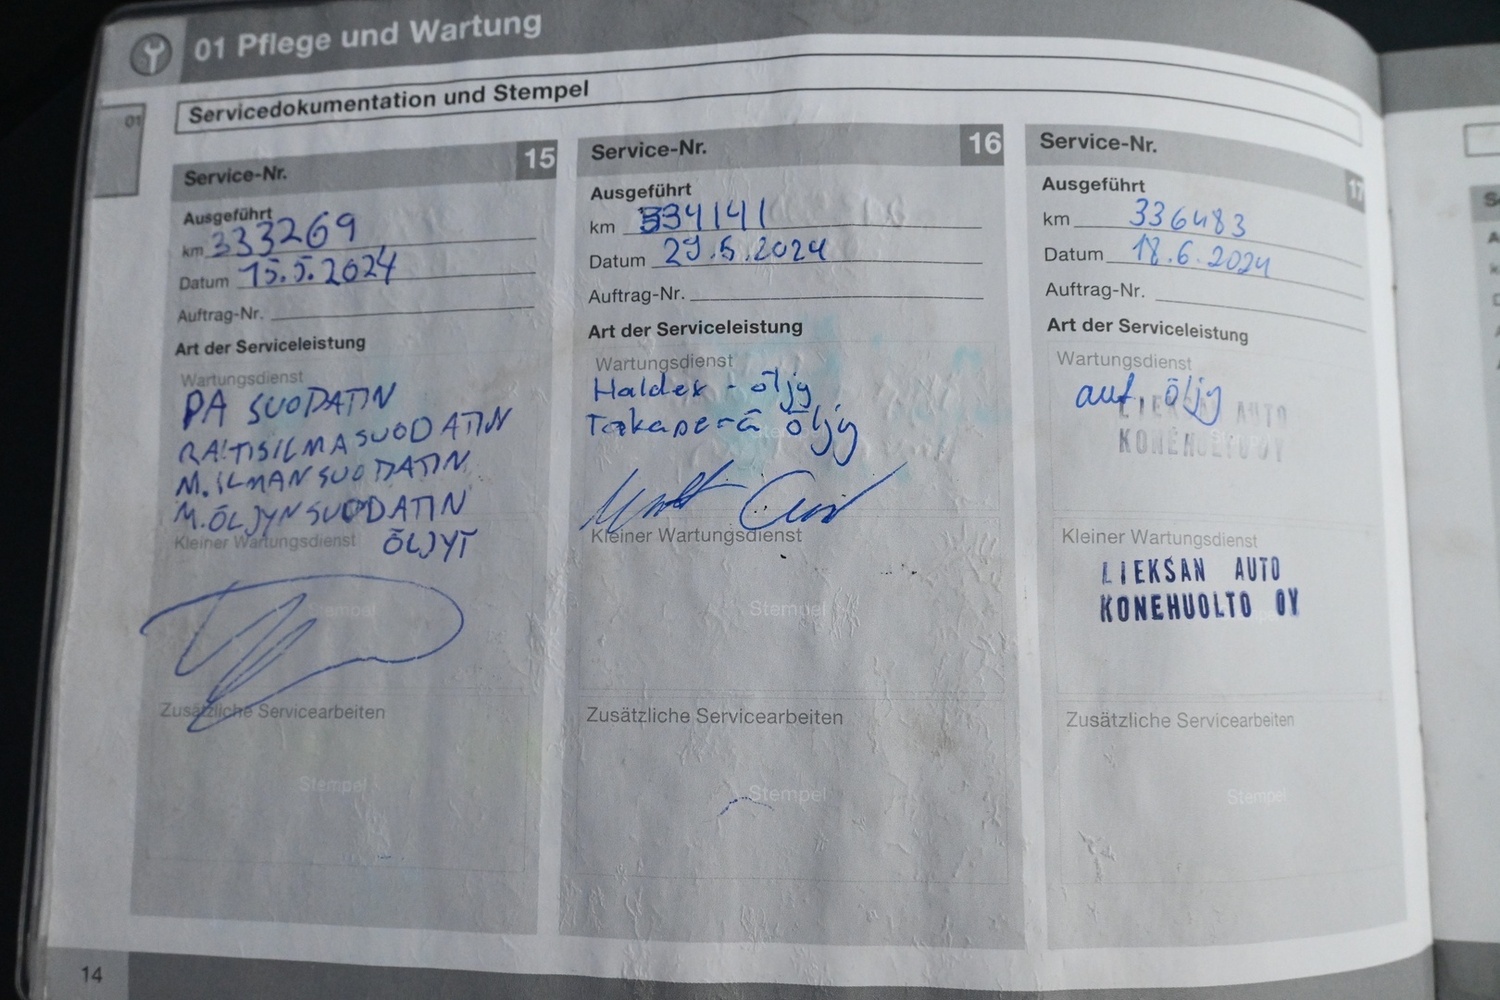 01 Pflege und Wartung
Servicedokumentation und Stempel
01
Service-Nr. 15
Ausgeführt
km 333269
Datum 15.5.2024
Auftrag-Nr.
Art der Serviceleistung
Wartungsdienst
PA SUODATIN
RAITISILMASUODATIN
M.ILMANSUODATIN
M.ÖLJYNSUODATIN
Kleiner Wartungsdienst ÖLJYT
Stempel
Zusätzliche Servicearbeiten
Stempel
Service-Nr. 16
Ausgeführt
km 334141
Datum 29.5.2024
Auftrag-Nr.
Art der Serviceleistung
Wartungsdienst
Haldex - öljy
Takaperä öljy
Kleiner Wartungsdienst
Stempel
Zusätzliche Servicearbeiten
Stempel
Service-Nr. 17
Ausgeführt
km 336483
Datum 18.6.2024
Auftrag-Nr.
Art der Serviceleistung
Wartungsdienst
aut. öljy
LIEKSAN AUTO
KONEHUOLTO OY
Kleiner Wartungsdienst
LIEKSAN AUTO
KONEHUOLTO OY
Zusätzliche Servicearbeiten
Stempel
14